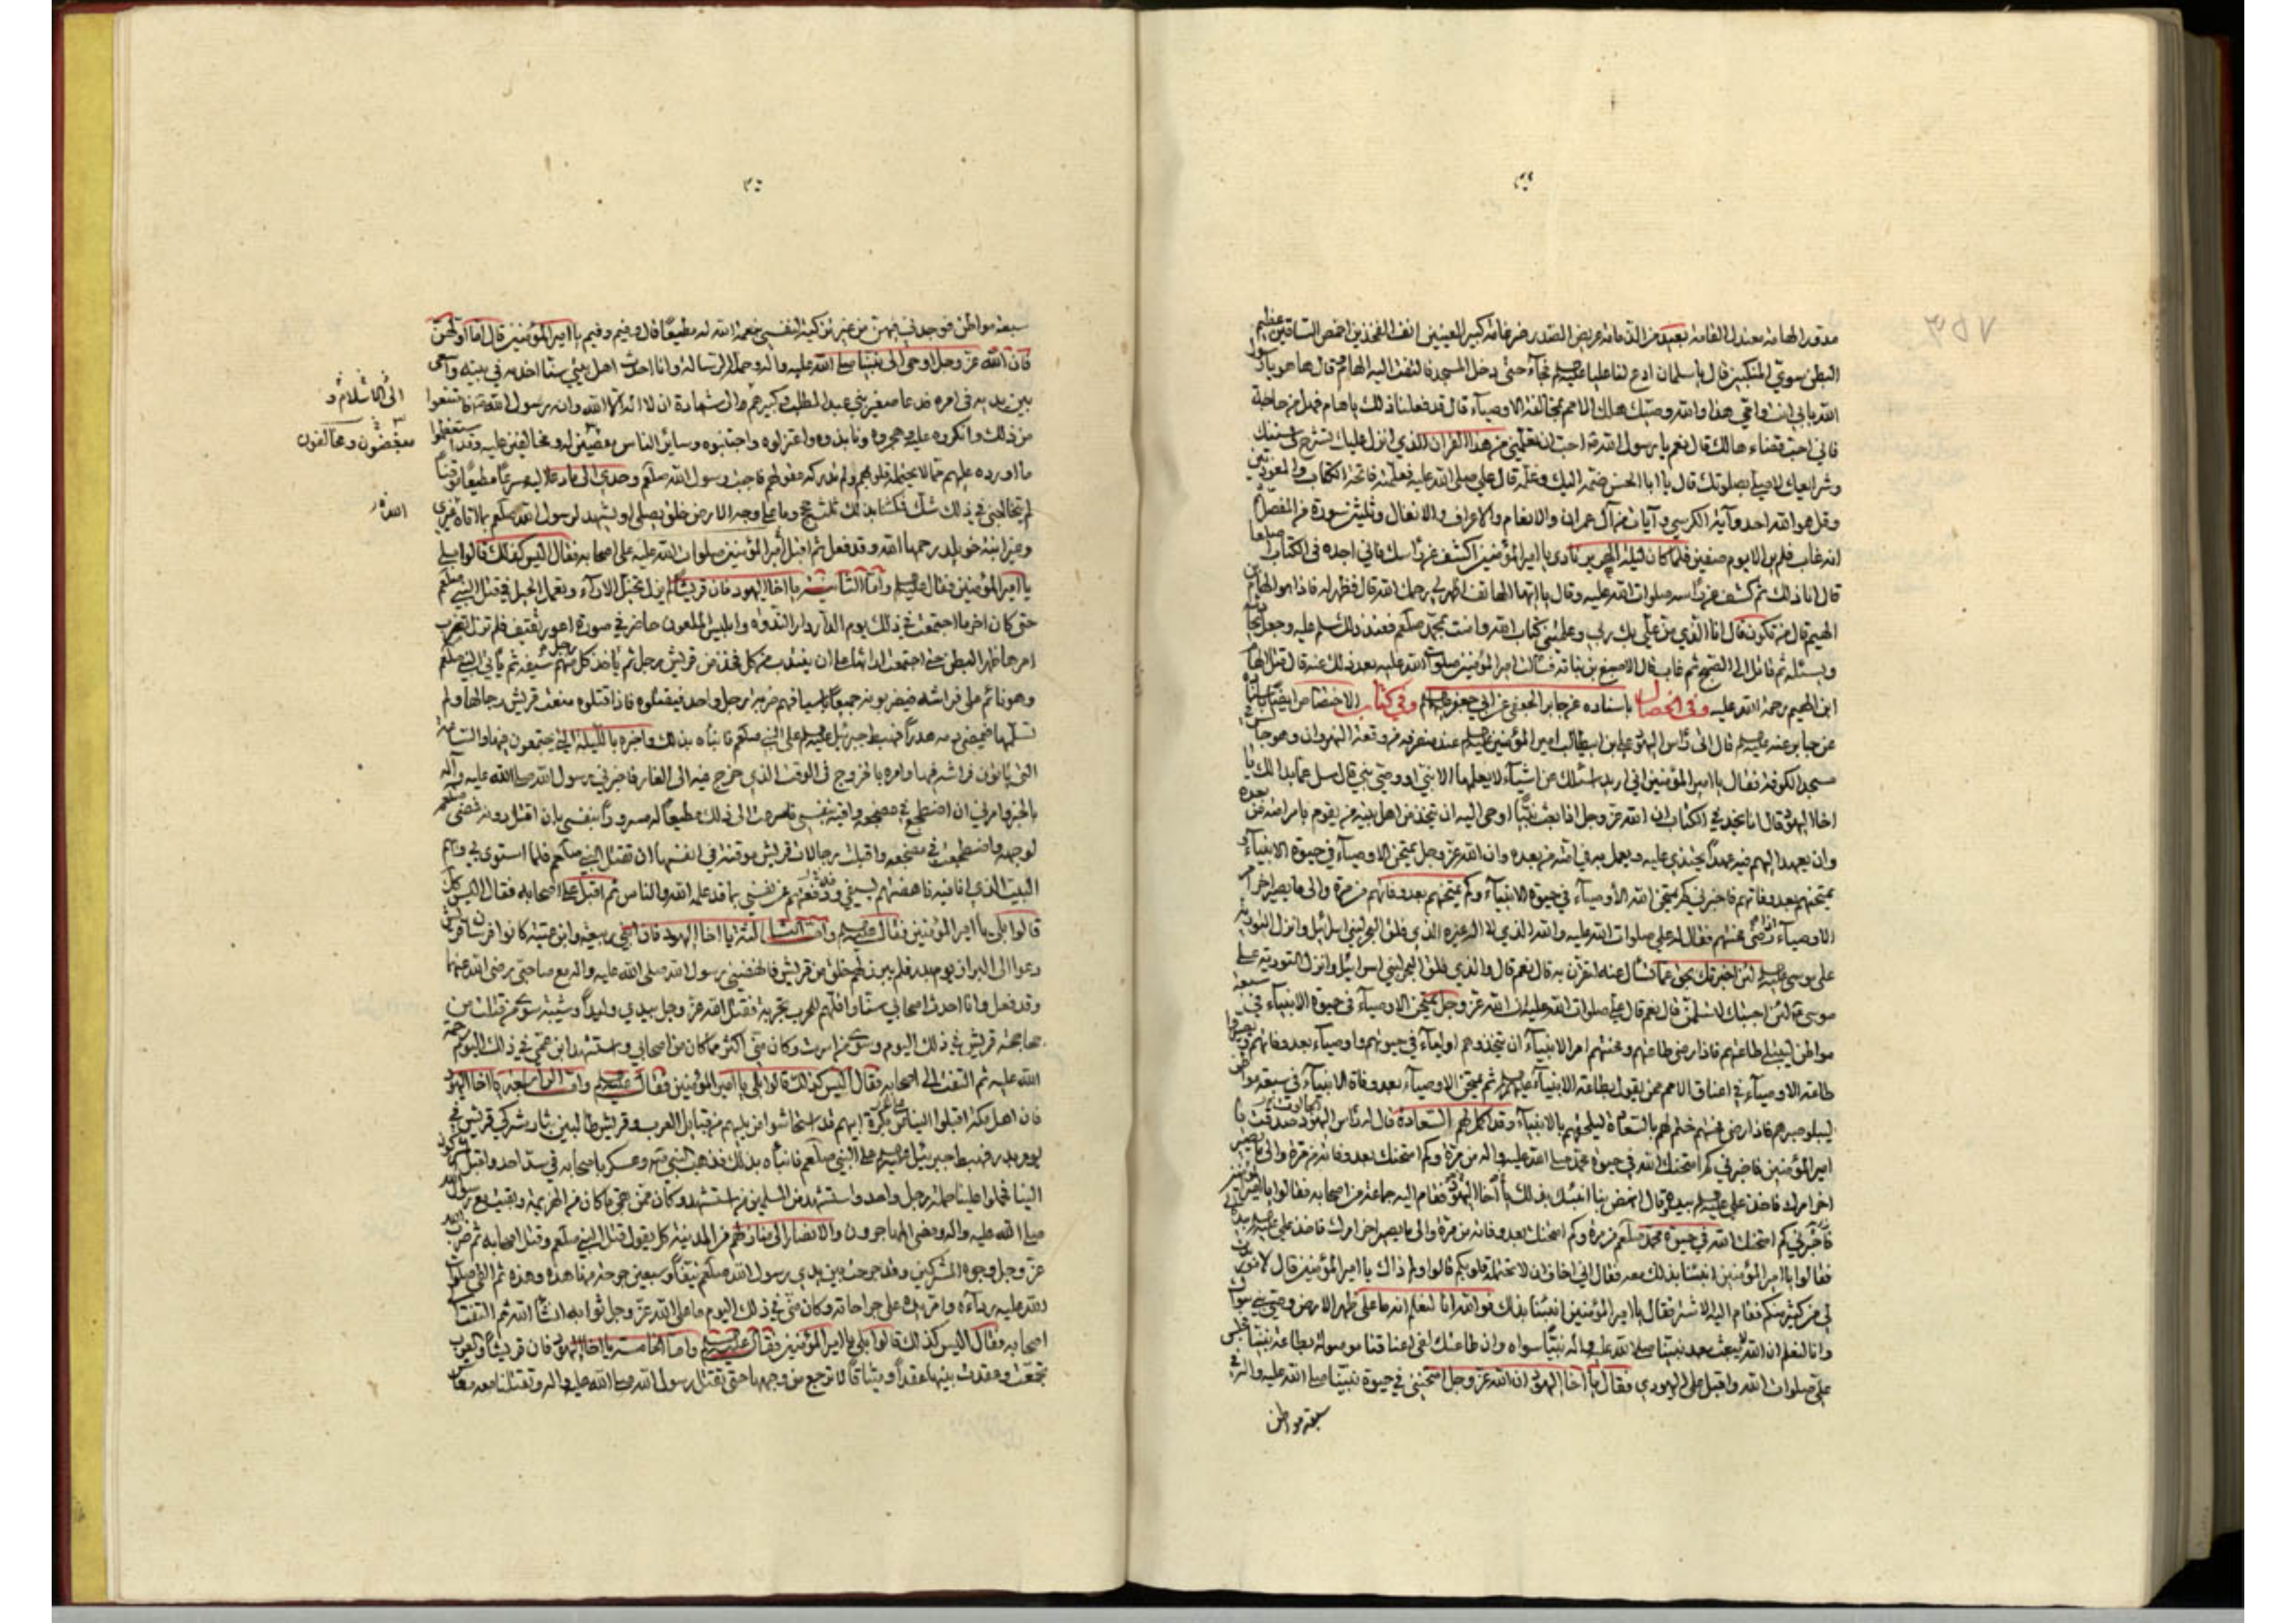 مدور الهامة معتدل القامة بعيد من الذمامة عريض الصدر ضرغامة كبير العينين انف الفخذين اخمص الساقين عظيم
البطن سوي المنكبين قال يا سلمان ادع لنا عليا فجآء حتى دخل المسجد فالتفت اليه الهام قال ها هو يا رسول
الله بابي انت وامي هذا والله وصيك هلك الامم بمخالفة الاوصيآء قال قد فعلنا ذلك يا هام فهل من حاجة
فاني احب قضاء حاجتك قال نعم يا رسول الله احب ان تعلمني من هذا القران الذي انزل عليك تشرح لي سنتك
وشرايعك لاصلي بصلوتك قال يا ابا الحسن ضمه اليك وعلمه قال علي صلى الله عليه فعلمته فاتحة الكتاب والمعوذتين
وقل هو الله احد وآية الكرسي وآيات من آل عمران والانعام والاعراف والانفال وثلثين سورة من المفصل
انه غاب فلم ير الا يوم صفين فلما كان ليلة الهرير نادى يا امير المؤمنين اكشف عن راسك فاني اجده في الكتاب
قال انا ذلك ثم كشف عن راسه صلوات الله عليه وقال يا ايها الهاتف اظهر لي رحمك الله قال فظهر له فاذا هو الهام بن
الهيم قال من تكون قال انا الذي من علي بك ربي وعلمتني كتاب الله وامنت بمحمد صلعم فعند ذلك سلم عليه وجعل يحادثه
ويسئله ثم قاتل الى الصبح ثم غاب قال الاصبغ بن نباتة فسالت امير المؤمنين صلوات الله عليه بعد ذلك عنه قال قتل الهام
ابن الهيم رحمة الله عليه وفي الخصال باسناده عن جابر الجعفي عن ابي جعفر وفي كتاب الاختصاص ايضا باسناده
عن جابر عنه قال اتى راس اليهود علي بن ابيطالب امير المؤمنين عند منصرفه من وقعة النهروان وهو جالس في
مسجد الكوفة فقال يا امير المؤمنين اني اريد اسئلك عن اشيآء لا يعلمها الا نبي او وصي نبي قال سل عما بدا لك يا
اخا اليهود قال انا نجد في الكتاب ان الله عز وجل اذا بعث نبيا اوحى اليه ان يتخذ من اهل بيته من يقوم بامر امته من بعده
وان يعهد اليهم فيه عهدا يحتذى عليه ويعمل به في امته من بعده وان الله عز وجل يمتحن الاوصيآء في حيوة الانبيآء و
يمتحنهم بعد وفاتهم فاخبرني كم يمتحن الله الاوصيآء في حيوة الانبيآء وكم يمتحنهم بعد وفاتهم من مرة والى ما يصير اخر امر
الاوصيآء اذا رضى محنتهم فقال له علي صلوات الله عليه والله الذي لا اله غيره الذي فلق البحر لبني اسرائيل وانزل التورية
على موسى لئن اخبرتك بحق عما تسال عنه لتقرن به قال نعم قال والذي فلق البحر لبني اسرائيل وانزل التورية على
موسى لئن اجبتك لتسلمن قال نعم قال علي صلوات الله عليه ان الله عز وجل يمتحن الاوصيآء في حيوة الانبيآء في سبعة
مواطن ليبتلي طاعتهم فاذا رضي طاعتهم ومحنتهم امر الانبيآء ان يتخذوهم اوليآء في حيوتهم واوصيآء بعد وفاتهم ويصير
طاعة الاوصيآء في اعناق الامم ممن يقول بطاعة الانبيآء ثم يمتحن الاوصيآء بعد وفاة الانبيآء في سبعة مواطن
ليبلو صبرهم فاذا رضي محنتهم ختم لهم بالسعادة ليلحقهم بالانبيآء وقد اكمل لهم السعادة قال له راس اليهود صدقت يا
امير المؤمنين فاخبرني كم امتحنك الله في حيوة محمد صلى الله عليه واله من مرة وكم امتحنك بعد وفاته من مرة والى ما يصير
اخر امرك فاخذ علي بيده وقال انهض بنا انبئك بذلك يا اخا اليهود فقام اليه جماعة من اصحابه فقالوا يا امير المؤمنين
فقالوا يا امير المؤمنين انبئنا بذلك معه فقال اني اخاف ان لا تحتمله قلوبكم قالوا ولم ذاك يا امير المؤمنين قال لامور
لي من كثير منكم فقام اليه الاشتر فقال يا امير المؤمنين انبئنا بذلك فوالله انا لنعلم انه ما على ظهر الارض وصي نبي سواك
وانا لنعلم ان الله لا يبعث بعد نبينا صلى الله عليه واله نبيا سواه وان طاعتك لفي اعناقنا موصولة بطاعة نبينا فجلس
علي صلوات الله واقبل على اليهودي فقال يا اخا اليهود ان الله عز وجل امتحنني في حيوة نبينا صلى الله عليه واله في
سبعة مواطن
سبعة مواطن فوجدني فيهن من غير تزكية لنفسي بنعمة الله له مطيعا قال وفيم وفيم يا امير المؤمنين قال اما اولهن
فان الله عز وجل اوحى الى نبينا صلى الله عليه واله وحمله الرسالة وانا احدث اهل بيتي سنا اخدمه في بيته واسعى
بين يديه في امره فدعا صغير بني عبد المطلب وكبيرهم الى شهادة ان لا اله الا الله وان رسول الله فامتنعوا
الى الاسلام و
من ذلك وانكروه عليه وهجروه ونابذوه واعتزلوه واجتنبوه وسائر الناس مقصين له ومخالفين عليه وقد استعظموا
مبغضون ومخالفون
ما اورده عليهم مما لا يحتمله قلوبهم ولم تدركه عقولهم فاجبت رسول الله صلعم وحدي الى ما دعا اليه مسرعا مطيعا موقنا
لم يتخالجني في ذلك شك فمكثنا بذلك ثلث حجج وما على وجه الارض خلق يصلي او يشهد لرسول الله صلعم بما اتاه غيري
وغير ابنة خويلد رحمها الله وقد فعل ثم اقبل امير المؤمنين صلوات الله عليه على اصحابه فقال اليس كذلك قالوا بلى
يا امير المؤمنين فقال واما الثانية يا اخا اليهود فان قريشا لم يزل تخيل الاراء وتعمل الحيل في قتل النبي صلعم
حتى كان اخر ما اجتمعت في ذلك يوم الدار دار الندوة وابليس الملعون حاضر في صورة اعور ثقيف فلم تزل تضرب
امرها ظهر البطن حتى اجتمعت ارائها على ان ينتدب من كل فخذ من قريش رجل ثم ياخذ كل رجل منهم سيفه ثم ياتي النبي صلعم
وهو نائم على فراشه فيضربونه جميعا باسيافهم ضربة رجل واحد فيقتلوه فاذا قتلوه منعت قريش رجالها ولم
تسلمها فيمضي دمه هدرا فهبط جبرئيل على النبي صلعم فانبأه بذلك واخبره بالليلة التي يجتمعون فيها والساعة
التي ياتون فراشه فيها وامره بالخروج في الوقت الذي خرج فيه الى الغار فاخبرني رسول الله صلى الله عليه وآله
بالخبر وامرني ان اضطجع في مضجعه واقيه بنفسي فاسرعت الى ذلك مطيعا له مسرورا بنفسي بان اقتل دونه فمضى صلعم
لوجهه واضطجعت في مضجعه واقبلت رجالات قريش موقنة في انفسها ان تقتل النبي صلعم فلما استوى بي وبهم
البيت الذي انا فيه ناهضتهم بسيفي ودفعتهم عن نفسي بما قد علمه الله والناس ثم اقبل على اصحابه فقال اليس كذلك
قالوا بلى يا امير المؤمنين فقال واما الثالثة يا اخا اليهود فان ابني ربيعة وابن عتبة كانوا فرسان قريش
دعوا الى البراز يوم بدر فلم يبرز لهم خلق من قريش فانهضني رسول الله صلى الله عليه واله مع صاحبي رضى الله عنهما
وقد فعل وانا احدث اصحابي سنا واقلهم للحرب تجربة فقتل الله عز وجل بيدي وليدا وشيبة سوى من قتلت من
جحاجحة قريش في ذلك اليوم وسوى من اسرت وكان مني اكثر مما كان من اصحابي واستشهد ابن عمي في ذلك اليوم رحمة
الله عليه ثم التفت الى اصحابه فقال اليس كذلك قالوا بلى يا امير المؤمنين فقال واما الرابعة يا اخا اليهود
فان اهل مكة اقبلوا الينا على بكرة ابيهم قد استحاشوا من يليهم من قبايل العرب وقريش طالبين بثار مشركي قريش في
يوم بدر فهبط جبرئيل على النبي صلعم فانبأه بذلك فذهب النبي وعسكر باصحابه في سد احد واقبل المشركون
الينا فحملوا علينا حملة رجل واحد واستشهد من المسلمين من استشهد وكان ممن بقي ما كان من الهزيمة وبقيت مع رسول الله
صلى الله عليه واله ومضى المهاجرون والانصار الى منازلهم من المدينة كل يقول قتل النبي صلعم وقتل اصحابه ثم ضرب الله
عز وجل وجوه المشركين وقد جرحت بين يدي رسول الله صلعم نيفا وسبعين جرحة منها هذه وهذه ثم القى صلوات
الله عليه رداءه وامر يده على جراحاته وكان مني في ذلك اليوم ما على الله عز وجل ثوابه انشا الله ثم التفت الى
اصحابه فقال اليس كذلك قالوا بلى يا امير المؤمنين فقال واما الخامسة يا اخا اليهود فان قريشا والعرب
تجمعت وعقدت بينها عقدا وميثاقا لا ترجع من وجهها حتى تقتل رسول الله صلى الله عليه واله وتقتلنا معه معاشر